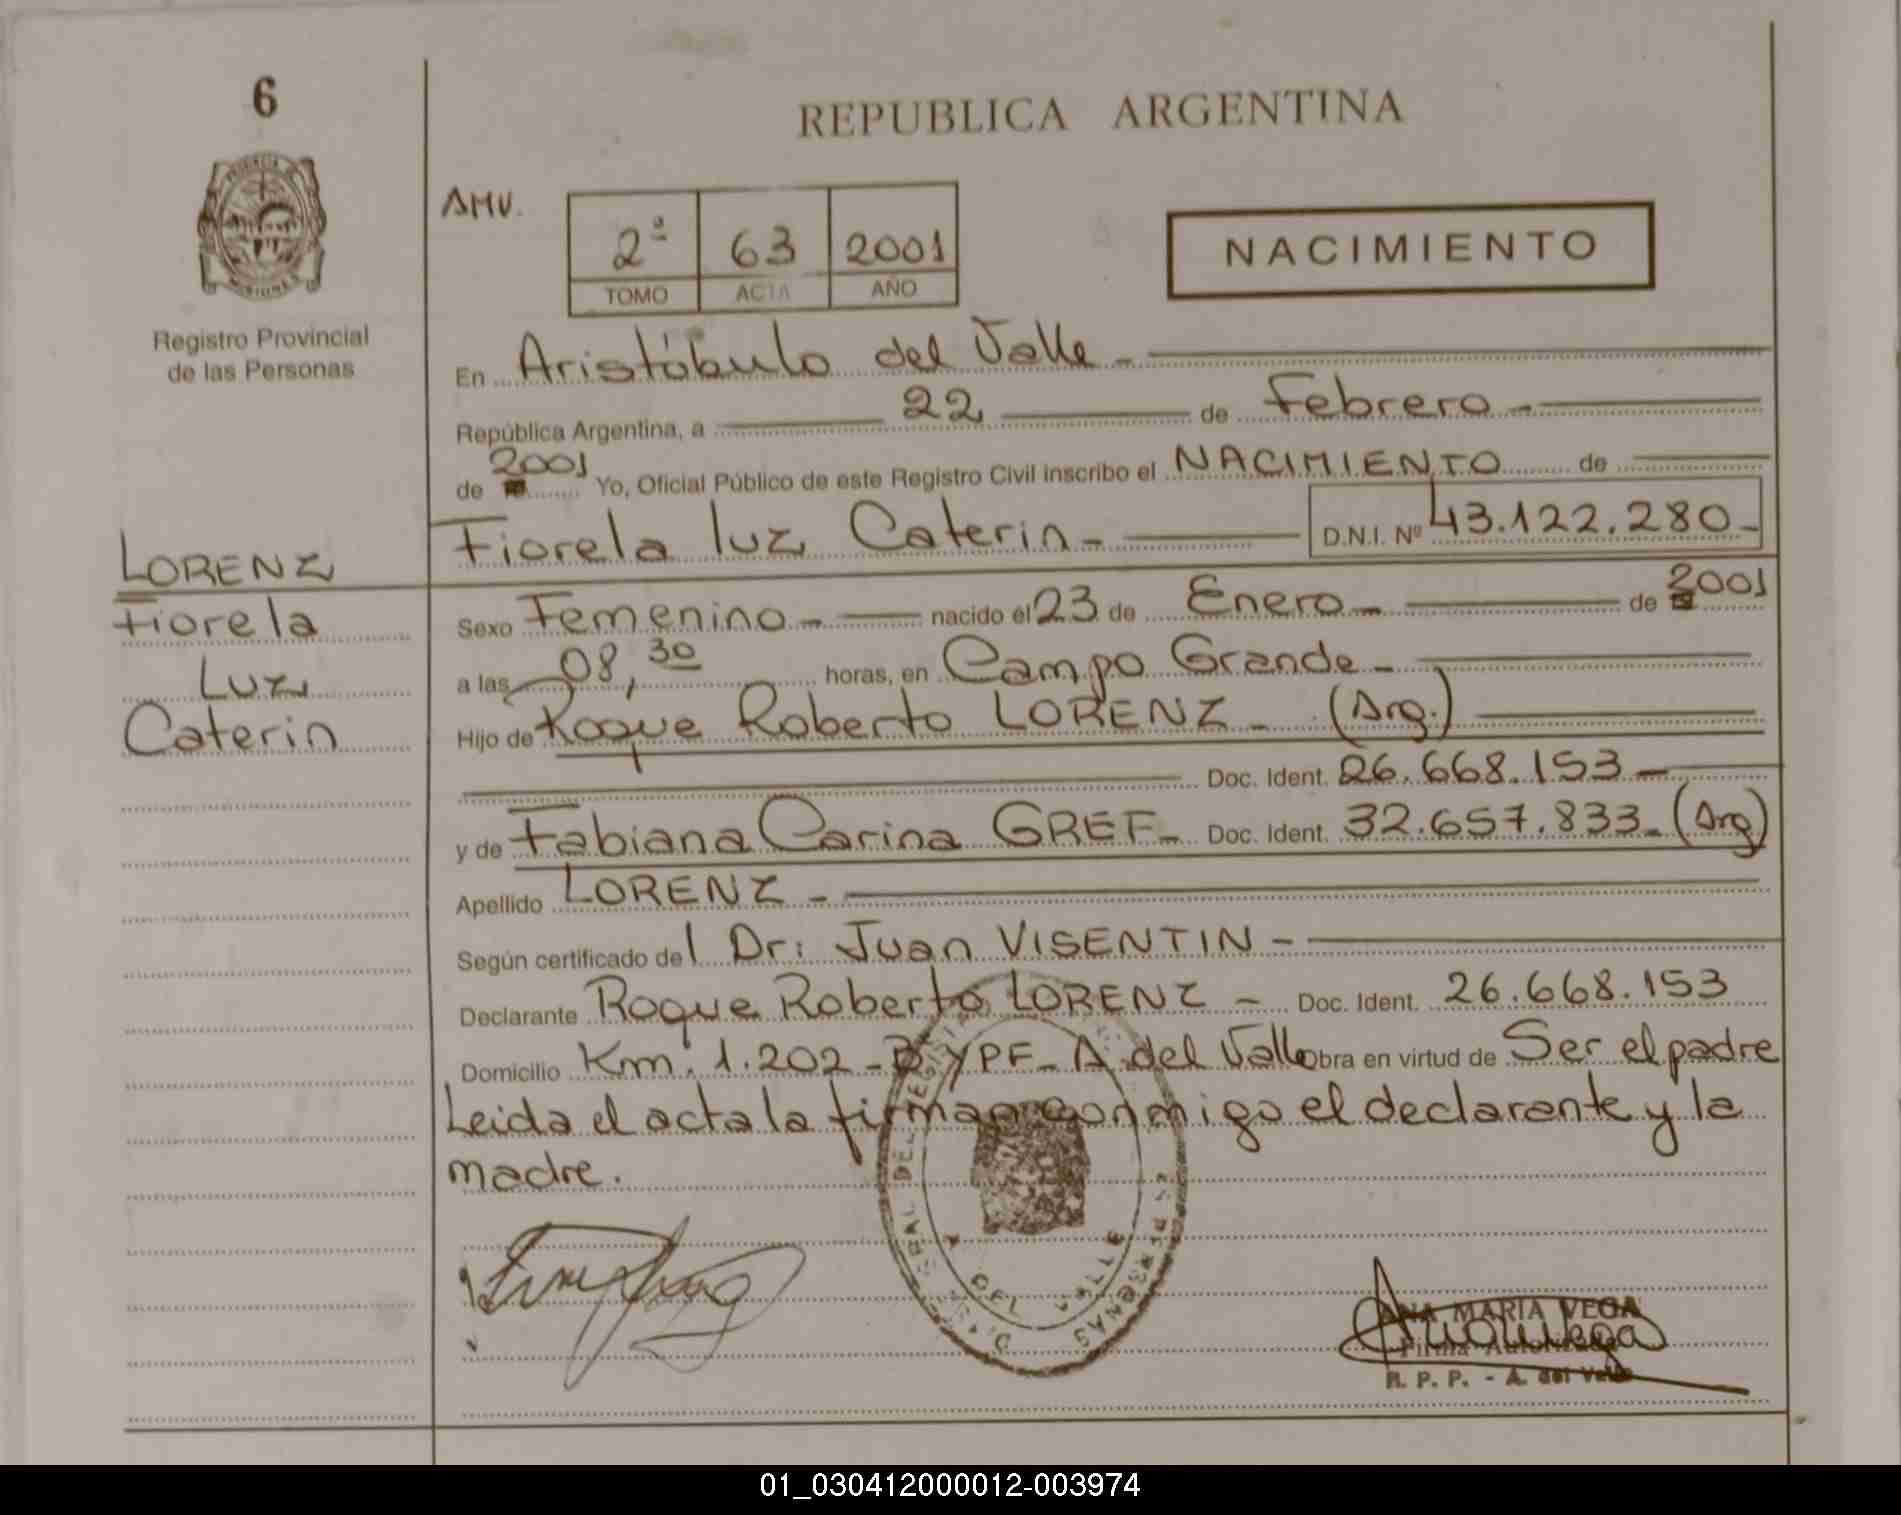 6
REPUBLICA ARGENTINA
AMV.
2ª 63 2001
TOMO ACTA AÑO
NACIMIENTO
Registro Provincial
de las Personas
En Aristóbulo del Valle -
República Argentina, a 22 de Febrero -
de 2001 Yo, Oficial Público de este Registro Civil inscribo el NACIMIENTO de
Fiorela luz Caterin - D.N.I. Nº 43.122.280-
LORENZ
Fiorela
Luz
Caterin
Sexo Femenino - nacido el 23 de Enero - de 2001
a las 08,30 horas, en Campo Grande -
Hijo de Roque Roberto LORENZ - (Arg.)
Doc. Ident. 26.668.153 -
y de Fabiana Carina GREF - Doc. Ident. 32.657.833 - (Arg)
Apellido LORENZ -
Según certificado del Dr: Juan VISENTIN -
Declarante Roque Roberto LORENZ - Doc. Ident. 26.668.153
Domicilio Km. 1.202 - B YPF - A. del Valle Obra en virtud de Ser el padre
Leida el acta la firman conmigo el declarante y la
madre.
A DEL VALLE
ANA MARIA VEGA
Firma Autorizada
R. P. P. - A. del Valle
01_030412000012-003974